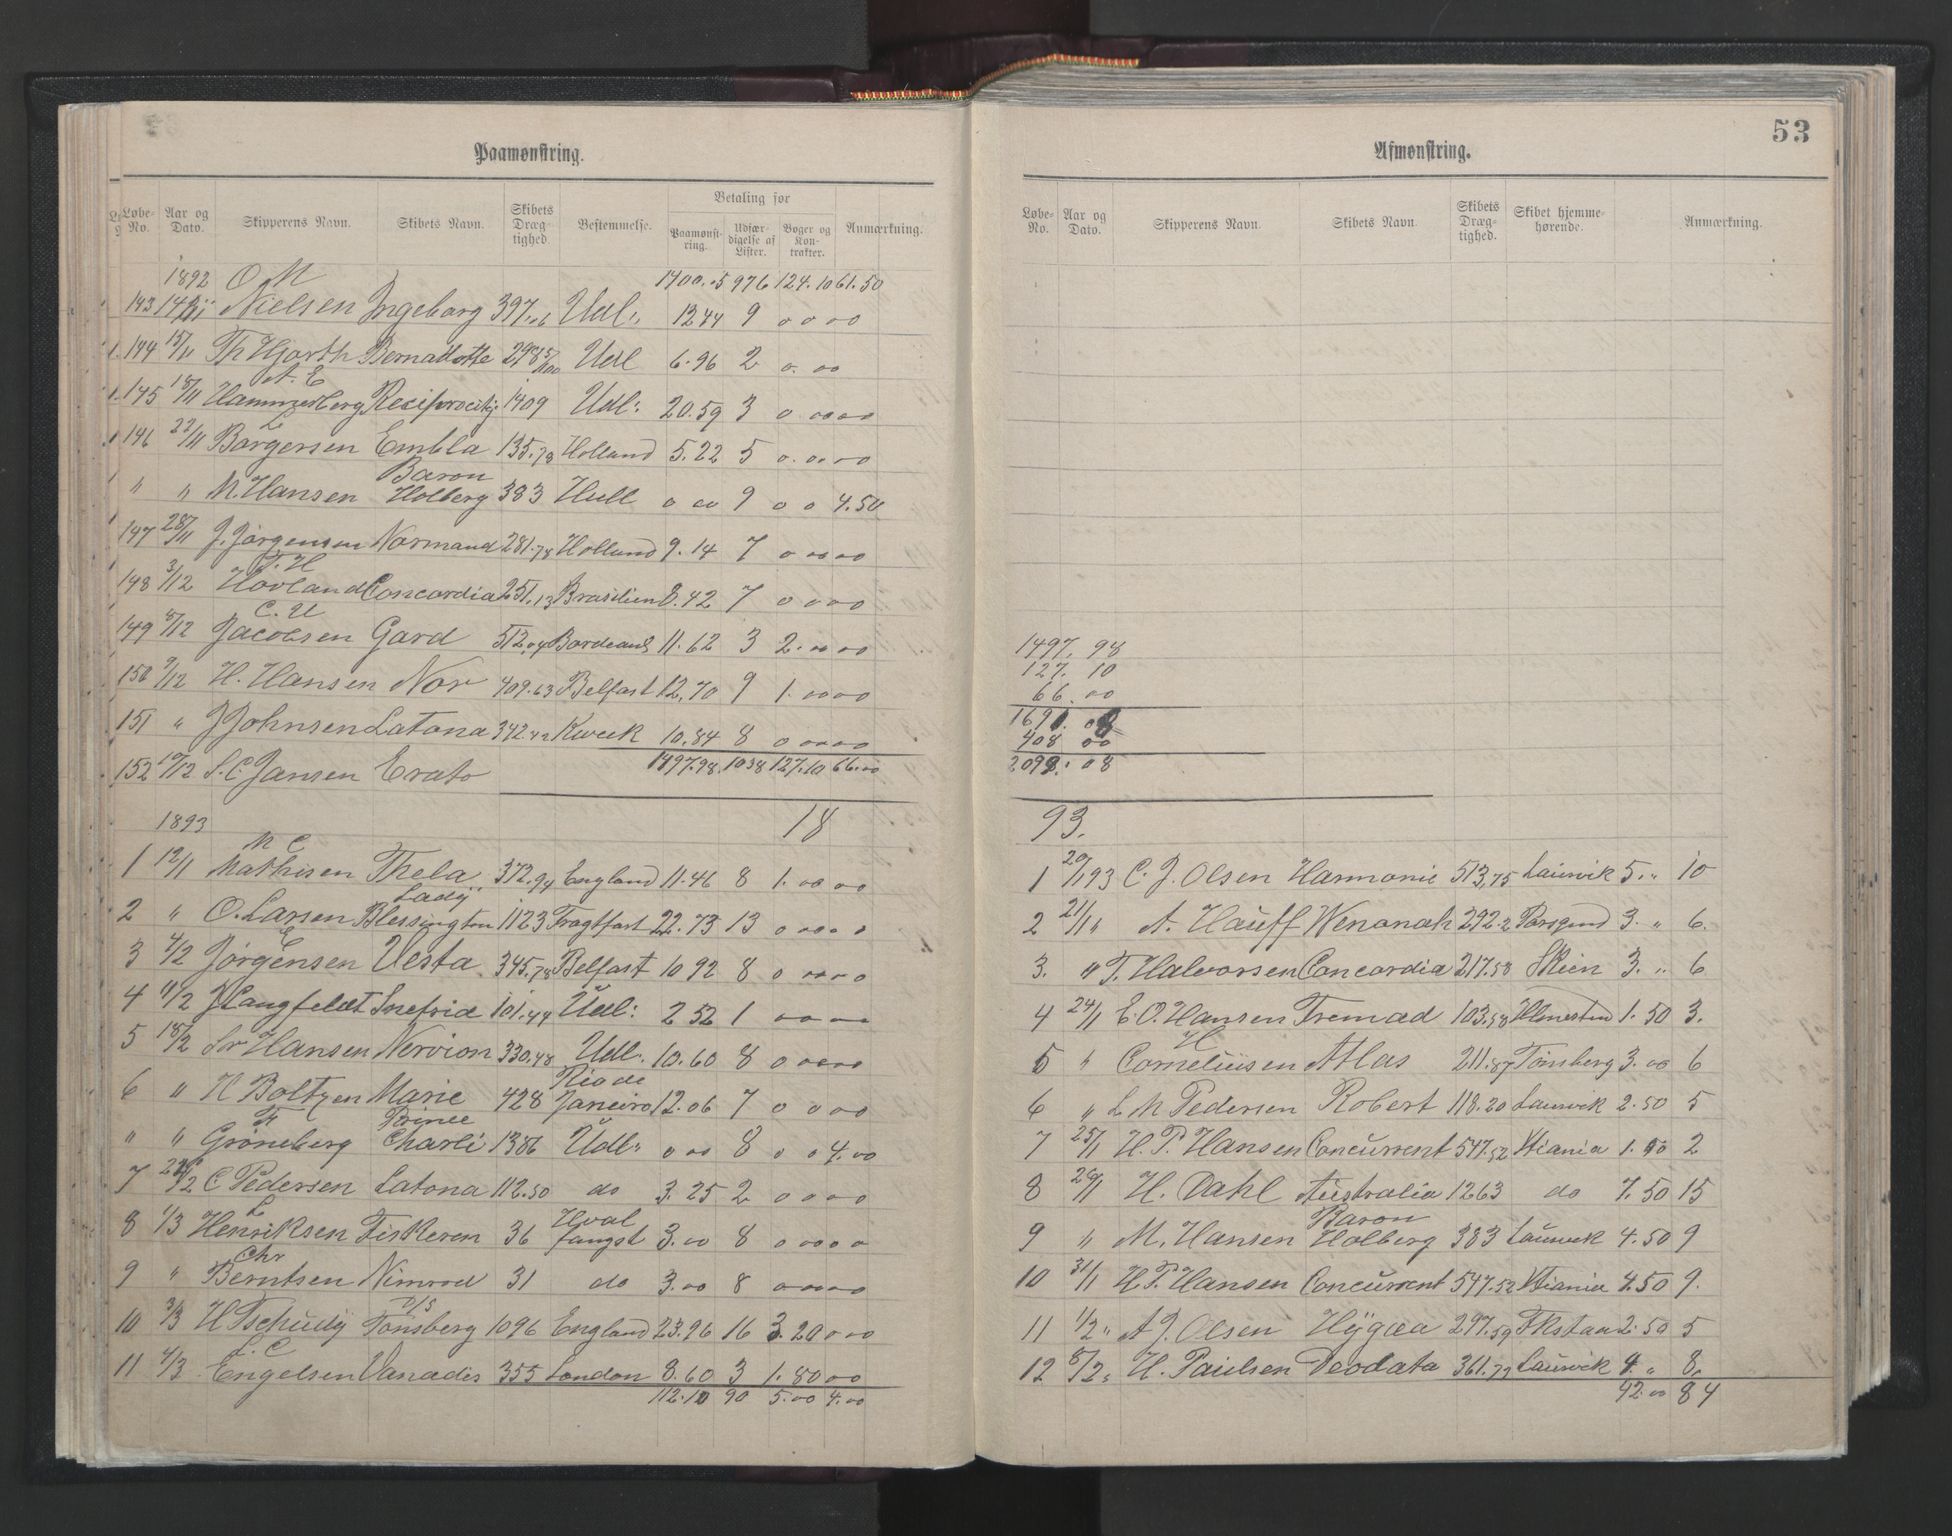 Paamønstring.
Løbe-No. Aar og Dato. Skipperens Navn. Skibets Navn. Skibets Dræg-tighed. Bestemmelse. Betaling for Paamønst-ring. Udfær-digelse af Lister. Bøger og Kon-trakter. Anmærkning.
1892 O M 1400.05 976 124.10 61.50
143 Nielsen Ingeborg 397.06 Udl. 1244 9 0 0 0 0
144 15/11 Th Hjorth Bernadotte Udl 6.96 2 0. 00
A. E
145 18/11 Hammerberg Reciprocity 1409 Udl: 20.59 3 0 0000
L
146 22/11 Børgersen Embla 135.78 Holland 5.22 5 0.0000
Baron
" " M. Hansen Holberg 383 Hull 0 00 9 0 0 4.50
147 28/11 J. Jørgensen Normand 281.78 Holland 9.14 7 0 0000
T. H
148 3/12 Hovland Concordia 251.13 Brasilien 8.42 7 0 0 0 0
C. U
149 8/12 Jacobsen Gard 512.04 Bordeaux 11.62 3 2.0000
150 9/12 H. Hansen Nor 409.63 Belfast 12.70 9 1.0000
151 " J Johnsen Latona 342.42 10.84 8 0 0000
152 10/12 S. C. Jansen Erato 1497.98 1038 127.10 66.00
1893 18
M C
1 12/1 Mathisen Thela 372.94 England 11.46 8 1.00 00
Lady
2 " O. Larsen Blessington 1123 Fragtfart 22.73 13 0 0000
E
3 4/2 Jørgensen Vesta 345.78 Belfast 10 92 8 0 0000
4 11/2 J Langfeldt Snefrid 101.44 Udl: 2 52 1
5 18/2 Hansen Nervion 330.48 Udl. 10.60 8 0 0000
Rio de
6 " H Boltzen Marie 428 Janeiro 12.06 7 0 0 00
Fr Prince
" " Grøneberg Charli 1386 Udl: 0 00 8 0 0 4.00
7 C Pedersen Latona 112.50 do 3.25 2 0 0 0 0
L Hval
8 1/3 Henriksen Fiskeren 36 fangst 3.00 8 0 0 0 0
Chr
9 " Berntsen Nimrod 31 do 3.00 8 0 0000
D/S
10 3/3 H Tschudy Tønsberg 1096 England 23.96 16 3.20 00
L. C
11 4/3 Engelsen Vanadis 355 London 8.60 3 1.80 00
112.10 90 5.00 4.00
53
Afmønstring.
Løbe-No. Aar og Dato. Skipperens Navn. Skibets Navn. Skibets Dræg-tighed. Skibet hjemme-hørende. Anmærkning.
1497.98
127.10
66.00
1691.08
408 00
2099.08
93.
1 20/1 93 C. J. Olsen Harmonie 513.75 Laurvik 5. " 10
2 21/1 " A. Hauff Wenonah 292.2 Porsgrund 3. " 6.
3. " T. Halvorsen Concordia 217.58 Skien 3. " 6
4 24/1 E. O. Hansen Fremad 103.58 Holmestrand 1.50 3.
H
5 " Corneliusen Atlas 211.87 Tønsberg 3.00 6
6 " L M Pedersen Robert 118.20 Laurvik 2.50 5
7 25/1 H. P. Hansen Concurrent 547.52 Xtiania 1.00 2
8 26/1 H. Dahl Australia 1263 do 7.50 15
Baron
9 " M. Hansen Holberg 383 Laurvik 4.50 9
10 31/1 H. P. Hansen Concurrent 547.52 Xtiania 4.50 9.
11 1/2 " A J. Olsen Hygæa 297.59 Fkstad 2.50 5
12 8/2 " H. Paulsen Deodata 361.79 Laurvik 4. " 8.
42.00 84